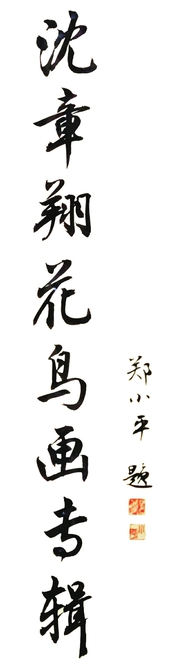 沈章翔花鸟画专辑
郑小平 题